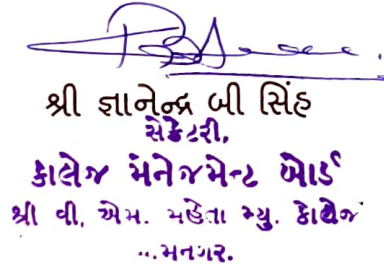 શ્રી જ્ઞાનેન્દ્ર બી સિંહ
સેક્રેટરી,
કાલેજ મેનેજમેન્ટ બોર્ડ
શ્રી વી. એમ. મહેતા મ્યુ. કોલેજ
...મનગર.